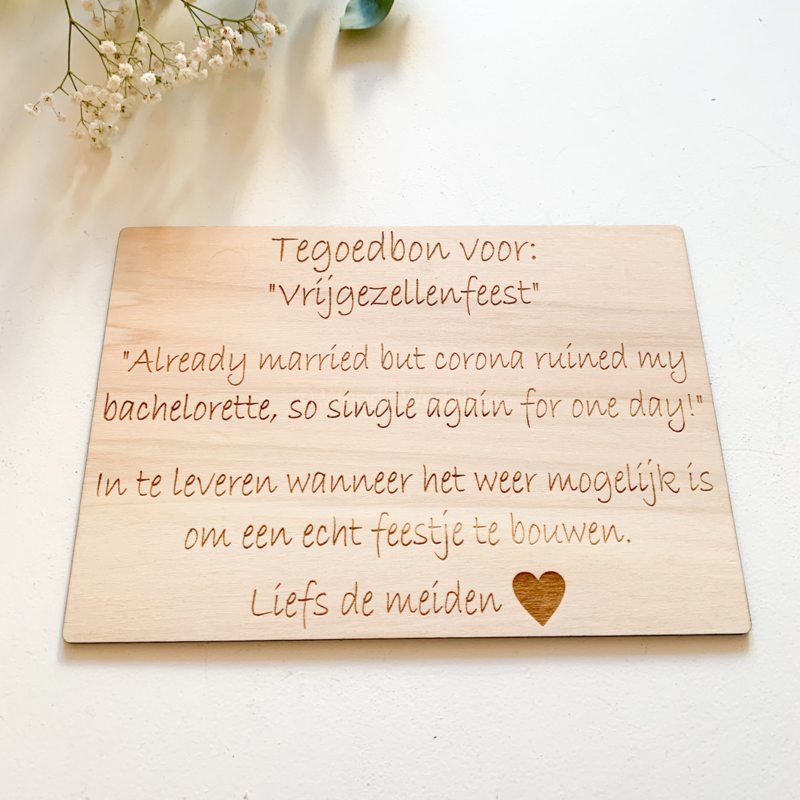 Tegoedbon voor:
"Vrijgezellenfeest"
"Already married but corona ruined my
bachelorette, so single again for one day!"
In te leveren wanneer het weer mogelijk is
om een echt feestje te bouwen.
Liefs de meiden